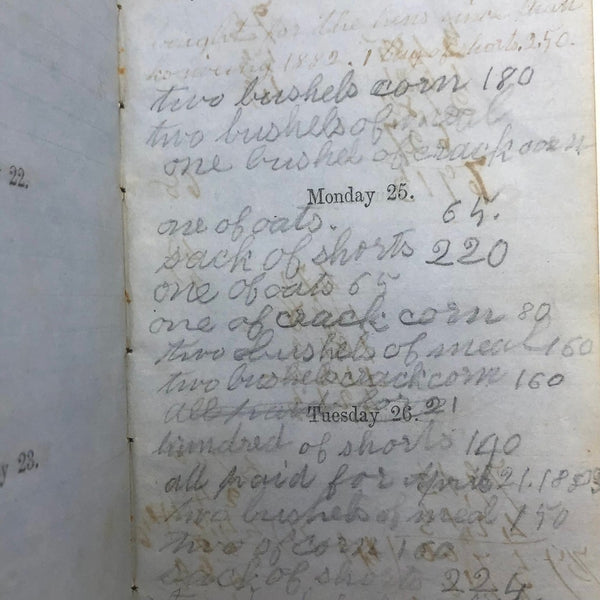 bought for the hens since than
ksgiving 1882. 1 bag of shorts. 2.50.
two bushels corn 180
two bushels of meal
one bushel of crack corn
22.
Monday 25.
one of oats. 65.
sack of shorts 220
one of oats 65
one of crack corn 80
two bushels of meal 160
two bushels crackcorn 160
all paid for 21
Tuesday 26.
hundred of shorts 190
y 23.
all paid for April 21. 1883
two bushels of meal 150
two of corn
sack of shorts 225